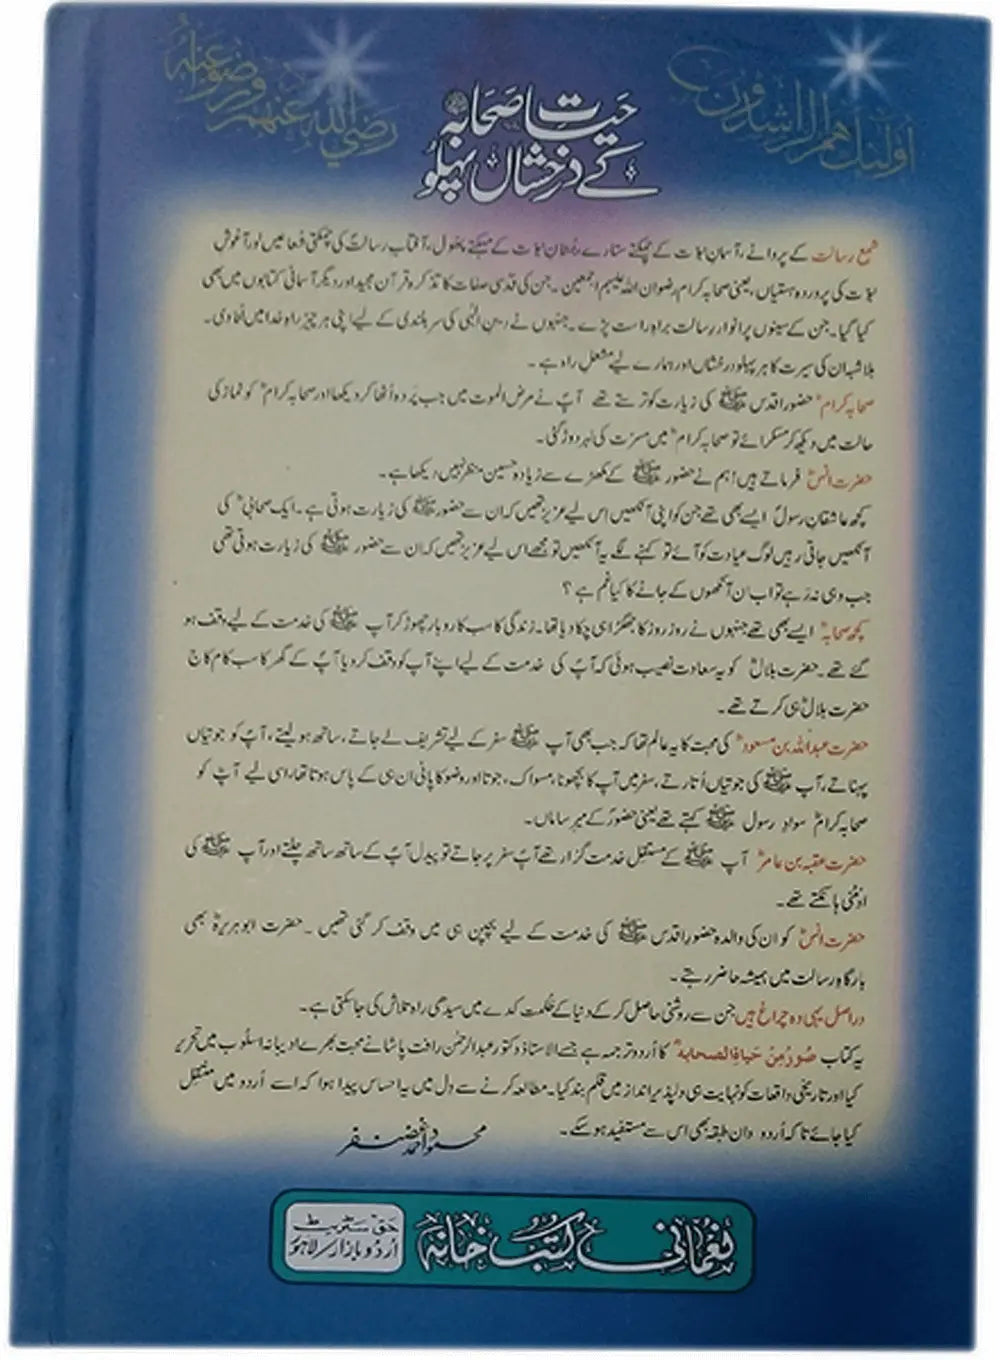 اولئك هم الراشدون
رضي الله عنهم ورضوا عنه
حیاتِ صحابہؓ
کے درخشاں پہلو
شمع رسالت کے پروانے، آسمانِ نبوّت کے چمکتے ستارے، بُستانِ نبوّت کے مہکتے پھول، آفتابِ رسالت کی چمکتی شعاعیں اور آغوشِ
نبوّت کی پروردہ ہستیاں، یعنی صحابہ کرام رضوان اللہ علیہم اجمعین۔ جن کی قدسی صفات کا تذکرہ قرآن مجید اور دیگر آسمانی کتابوں میں بھی
کیا گیا۔ جن کے سینوں پر انوارِ رسالت براہِ راست پڑے۔ جنہوں نے دینِ الٰہی کی سربلندی کے لیے اپنی ہر چیز راہِ خدا میں لُٹا دی۔
بلاشبہ ان کی سیرت کا ہر پہلو درخشاں اور ہمارے لیے مشعلِ راہ ہے۔
صحابہ کرامؓ حضور اقدس ﷺ کی زیارت کو ترستے تھے آپؐ نے مرض الموت میں جب پردہ اُٹھا کر دیکھا اور صحابہ کرامؓ کو نماز کی
حالت میں دیکھ کر مسکرائے تو صحابہ کرامؓ میں مسرّت کی لہر دوڑ گئی۔
حضرت انسؓ فرماتے ہیں! ہم نے حضور ﷺ کے مکھڑے سے زیادہ حسین منظر نہیں دیکھا ہے۔
کچھ عاشقانِ رسولؐ ایسے بھی تھے جن کو اپنی آنکھیں اِس لیے عزیز تھیں کہ ان سے حضور ﷺ کی زیارت ہوتی ہے۔ ایک صحابیؓ کی
آنکھیں جاتی رہیں لوگ عیادت کو آئے تو کہنے لگے یہ آنکھیں تو مجھے اس لیے عزیز تھیں کہ ان سے حضور ﷺ کی زیارت ہوتی تھی
جب وہی نہ رہے تو اب اِن آنکھوں کے جانے کا کیا غم ہے؟
کچھ صحابہؓ ایسے بھی تھے جنہوں نے روز روز کا جھگڑا ہی چکا دیا تھا۔ زندگی کا سب کاروبار چھوڑ کر آپ ﷺ کی خدمت کے لیے وقف ہو
گئے تھے۔ حضرت بلالؓ کو یہ سعادت نصیب ہوئی کہ آپؐ کی خدمت کے لیے اپنے آپ کو وقف کر دیا آپؐ کے گھر کا سب کام کاج
حضرت بلالؓ ہی کرتے تھے۔
حضرت عبداللہ بن مسعودؓ کی محبت کا یہ عالم تھا کہ جب بھی آپ ﷺ سفر کے لیے تشریف لے جاتے، ساتھ ہو لیتے، آپؐ کو جوتیاں
پہناتے، آپ ﷺ کی جوتیاں اُتارتے، سفر میں آپؐ کا بچھونا، مسواک، جوتا اور وضو کا پانی ان ہی کے پاس ہوتا تھا، اسی لیے آپؓ کو
صحابہ کرامؓ سوادِ رسول ﷺ کہتے تھے یعنی حضورؐ کے میر ساماں۔
حضرت عقبہ بن عامرؓ آپ ﷺ کے مستقل خدمت گزار تھے آپؐ سفر پر جاتے تو پیدل آپؐ کے ساتھ ساتھ چلتے اور آپ ﷺ کی
اونٹنی ہانکتے تھے۔
حضرت انسؓ کو ان کی والدہ حضور اقدس ﷺ کی خدمت کے لیے بچپن ہی میں وقف کر گئی تھیں۔ حضرت ابوہریرہؓ بھی
بارگاہِ رسالت میں ہمیشہ حاضر رہتے۔
دراصل یہی وہ چراغ ہیں جن سے روشنی حاصل کر کے دنیا کے ظلمت کدے میں سیدھی راہ تلاش کی جا سکتی ہے۔
یہ کتاب صُوَرٌ مِنْ حَیَاةِ الصحابهؓ کا اُردو ترجمہ ہے جسے الاستاذ دکتور عبدالرحمٰن رافت پاشا نے محبت بھرے ادیبانہ اسلوب میں تحریر
کیا اور تاریخی واقعات کو نہایت ہی دلپذیر انداز میں قلم بند کیا۔ مطالعہ کرنے سے دل میں یہ احساس پیدا ہوا کہ اسے اُردو میں منتقل
کیا جائے تاکہ اُردو دان طبقہ بھی اس سے مستفید ہو سکے۔
محمود احمد غضنفر
نعمانی کتب خانہ
حق سٹریٹ
اردو بازار لاہور